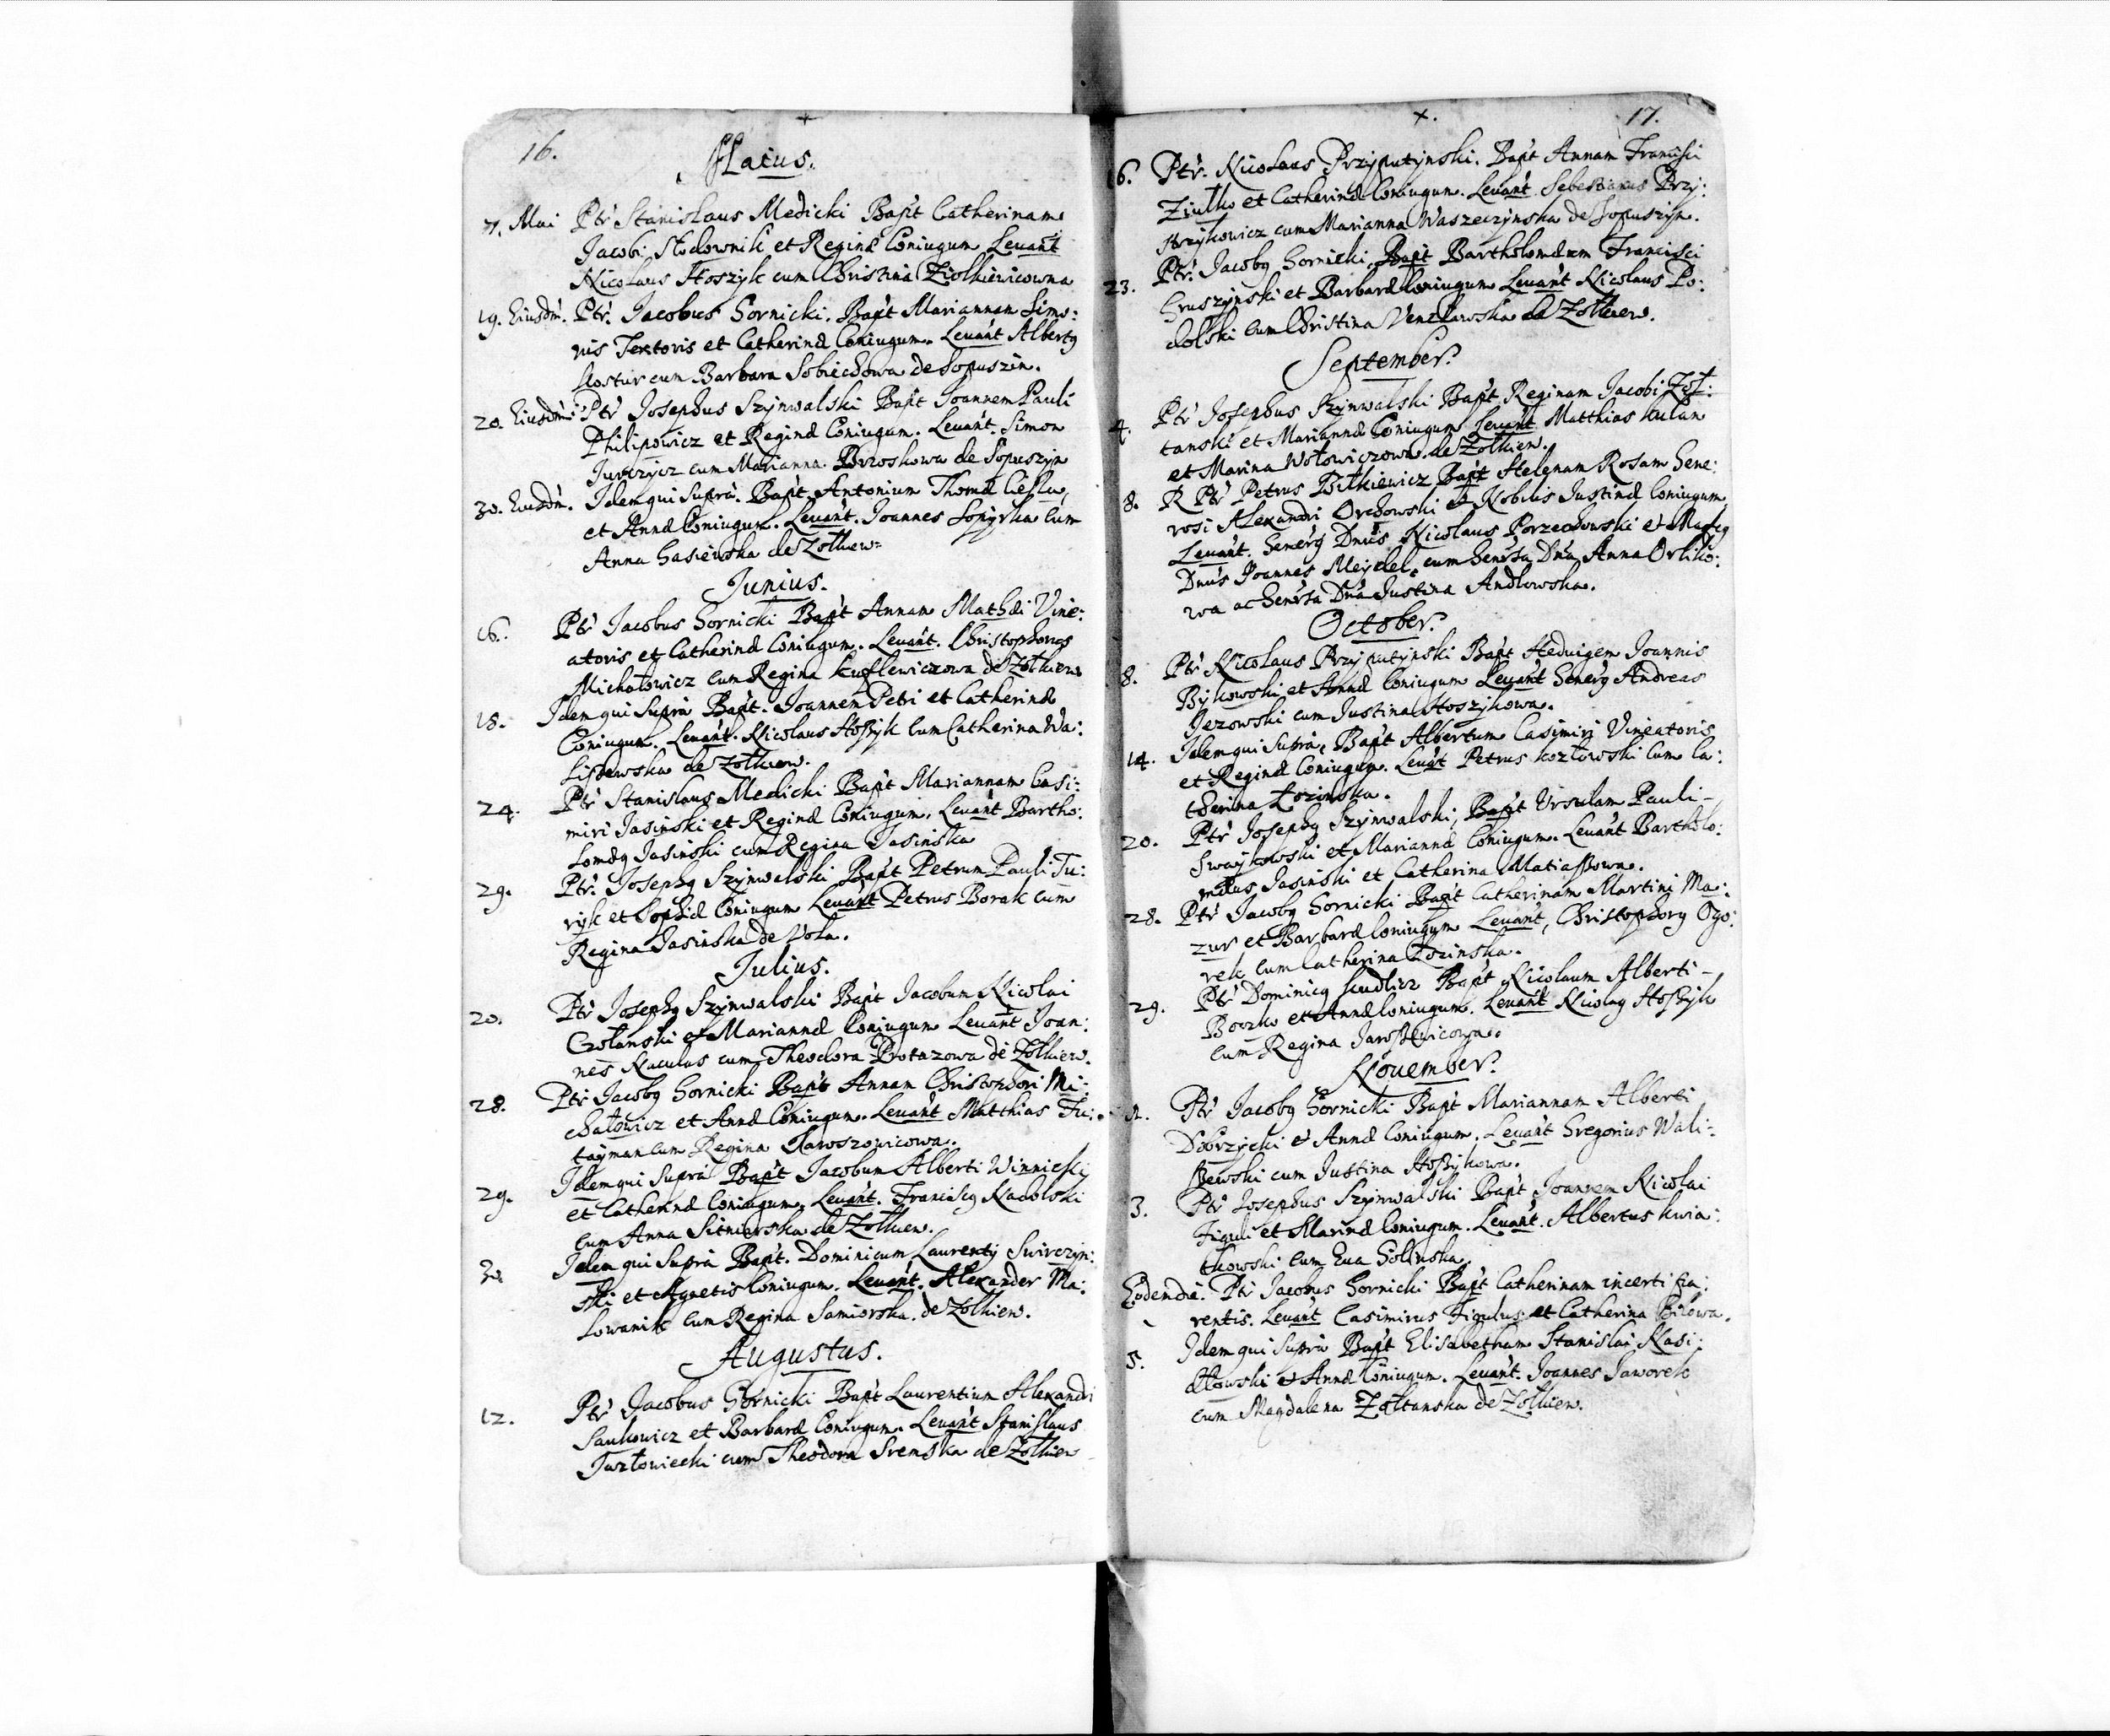 16.
Maius.
7. Maii Ptr Stanislaus Medicki Bapt Catherinam
Jacobi Słodownik et Reginæ Coniugum Leuant
Nicolaus Hoszyk cum Christina Ziolkiewicowna
19. Eiusdm. Ptr. Jacobus Gornicki. Bapt Mariannam Simo:
nis Textoris et Catherinæ Coniugum. Leuant Albertg
Kostur cum Barbara Sobiechowa de Sopuszin.
20. Eiusdm: Ptr Josephus Szynwalski Bapt Joannem Pauli
Philipowicz et Reginæ Coniugum. Leuant. Simon
Jurczycz cum Marianna Brzoskowa de Sopuszyn
30. Eiusdm. Idem qui Supra. Bapt Antonium Thomæ Ciesla,
et Annæ Coniugum. Leuant. Joannes Sopyrka cum
Anna Gasienska de Zolkiew:
Junius.
16. Ptr Jacobus Gornicki Bapt Annam Mathæi Vine:
atoris et Catherinæ Coniugum. Leuant. Christophorus
Michałowicz cum Regina de Zołkiew
18. Idem qui Supra Bapt. Joannem Petri et Catherinæ
Coniugum. Leuant. Nicolaus Hoszyk cum Catherina Wa:
liszewska de Zołkiew.
24. Ptr Stanislaus Medicki Bapt Mariannam Casi:
miri Jasinski et Reginæ Coniugum, Leuant Bartho:
lomæg Jasinski cum Regina Jasinska
29. Ptr. Josephg Szynwalski Bapt Petrum Pauli Tu:
ryk et Sophiæ Coniugum Leuant Petrus Borak cum
Regina Jasinska de Vola.
Julius.
20. Ptr Josephg Szynwalski Bapt Jacobum Nicolai
Czolanski et Mariannæ Coniugum Leuant Joan:
nes Kuculus cum Theodora Protazowa de Zolkiew.
28. Ptr Jacobg Gornicki Bapt Annam Christophori Mi:
chałowicz et Annæ Coniugum. Leuant Matthias Tu:
tayman cum Regina Jaroszowicowa.
29. Idem qui Supra Bapt Jacobum Alberti Winnicki
et Catherinæ Coniugum. Leuant. Franciscg Nadolski
cum Anna Sitnierska de Zolkiew.
30. Idem qui Supra Bapt. Dominicum Laurentij Swirczyn:
ski et Agnetis Coniugum. Leuant. Alexander Ma:
lowanik cum Regina Samiorska. de Zolkiew.
Augustus.
12. Ptr Jacobus Gornicki Bapt Laurentium Alexandri
Saukowicz et Barbaræ Coniugum. Leuant Stanislaus
Jurtowiecki cum Theodora Sremska de Zołkiew
17.
16. Ptr. Nicolaus Przyputynski. Bapt Annam Francisci
Ziulko et Catherinæ Coniugum. Leuant Sebestianus Przy:
strzykowicz cum Marianna Waszeczynska de Sopuszyn.
23. Ptr. Jacobg Gornicki Bapt Bartholomæum Francisci
Gruszynski et Barbaræ Coniugum Leuant Nicolaus Po:
dolski cum Christina Venzlawska de Zolkiew.
September.
4. Ptr Josephus Szynwalski Bapt Reginam Jacobi Zoł:
tanski et Mariannæ Coniugum Leuant Matthias Kulan
et Marina Wołowiczowa de Zolkiew.
8. R Ptr Petrus Bilkiewicz Bapt Helenam Rosam Gene:
rosi Alexandri Orchowski et Nobilis Justinæ Coniugum
Leuant. Generg Dnus Nicolaus Porzechowski et
Dnus Joannes Meydel, cum Genrsa Dna Anna Orliko:
wa ac Genrsa Dna Justina Andlowska.
October.
8. Ptr Nicolaus Przyputynski Bapt Heduigem Joannis
Bykowski et Annæ Coniugum Leuant Generg Andreas
Jezowski cum Justina Hoszykowa.
14. Idem qui Supra, Bapt Albertum Casimiri Vineatoris
et Reginæ Coniugum. Leuant Petrus Kozłowski cum Ca:
therina Łozinska.
20. Ptr Josephg Szynwalski, Bapt Ursulam Pauli
Swaykowski et Mariannæ Coniugum. Leuant Bartholo:
mæus Jasinski et Catherina Matiaszowa.
28. Ptr Jacobg Gornicki Bapt Catherinam Martini Ma:
zur et Barbaræ Coniugum Leuant, Christophorg Ogo:
rek cum Catherina Łozinska.
29. Ptr Dominicg Bapt Nicolaum Alberti
Boczko et Annæ Coniugum. Leuant Nicolag Hoszyk
cum Regina Jaroszewicowa.
Nouember.
1. Ptr Jacobg Gornicki Bapt Mariannam Alberti
Dobrzycki et Annæ Coniugum. Leuant Gregorius Wali:
szewski cum Justina Hoszykowa.
3. Ptr Josephus Szynwalski Bapt Joannem Nicolai
Figuli et Marinæ Coniugum. Leuant. Albertus Kwia:
tkowski cum Eua Golinska.
Eodem die. Ptr Jacobus Gornicki Bapt Catherinam incerti Pa:
rentis. Leuant Casimirus Figulus et Catherina Bilowa.
5. Idem qui Supra Bapt Elisabetham Stanislai Nasi:
dłowski et Annæ Coniugum. Leuant. Joannes Jaworek
cum Magdalena Zołtanska de Zolkiew.